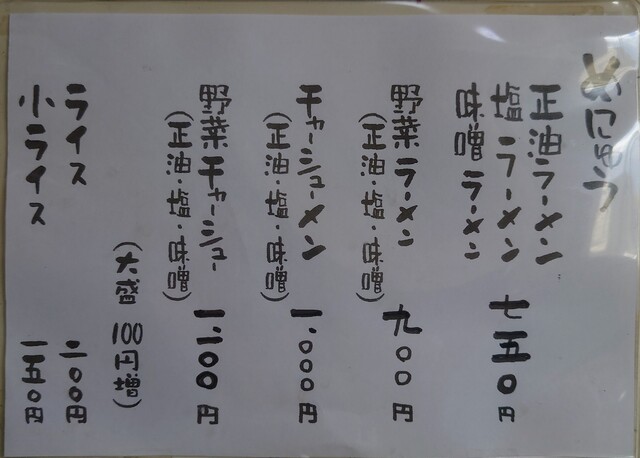 めにゅう
正油ラーメン
塩ラーメン 七五〇円
味噌ラーメン
野菜ラーメン 九〇〇円
(正油・塩・味噌)
チャーシューメン 一、〇〇〇円
(正油・塩・味噌)
野菜チャーシュー 一、一〇〇円
(正油・塩・味噌)
(大盛 100円増)
ライス 二〇〇円
小ライス 一五〇円